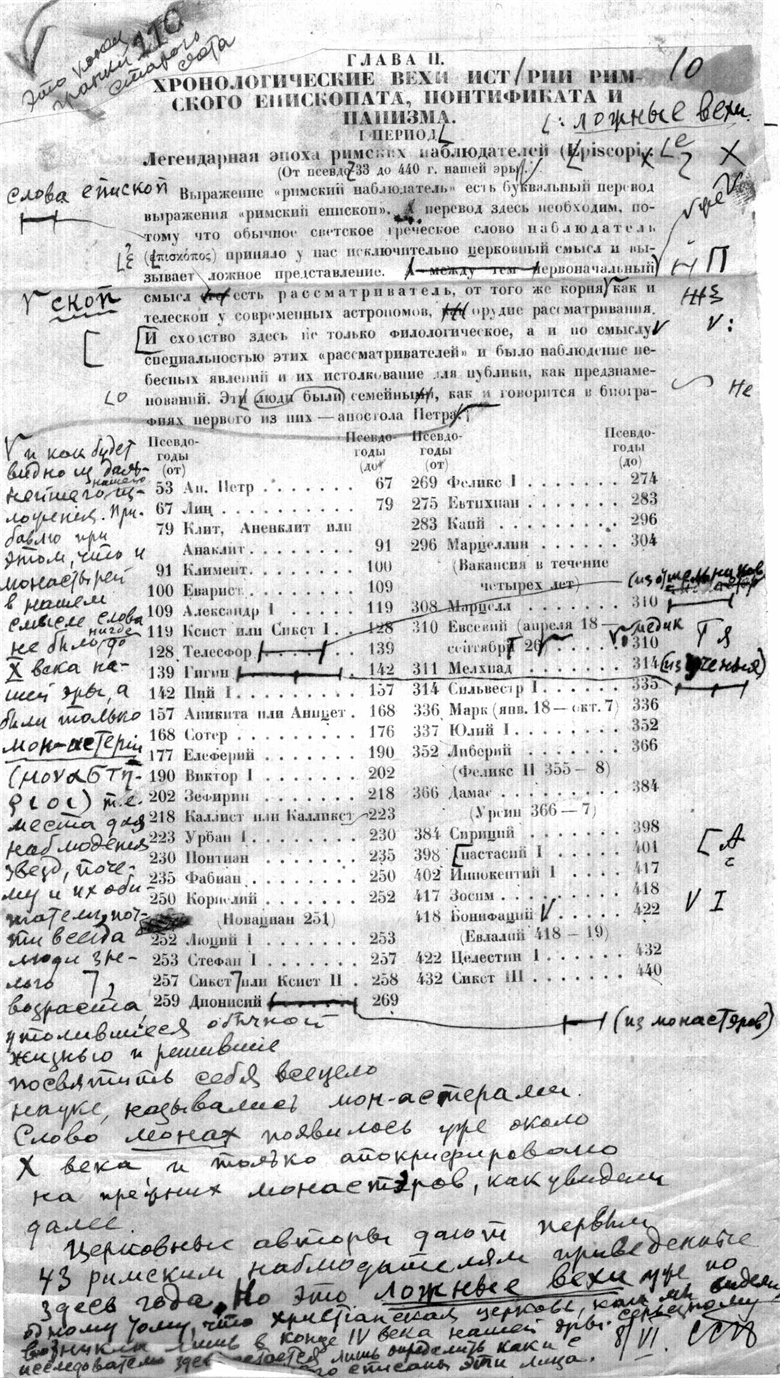 Это конец
гранки 110
старого
счета
10
ГЛАВА II.
ХРОНОЛОГИЧЕСКИЕ ВЕХИ ИСТ/РИИ РИМ-
СКОГО ЕПИСКОПАТА, ПОНТИФИКАТА И
ПАПИЗМА.
I ПЕРИОД
: ложные вехи.
Легендарная эпоха римских наблюдателей (Episcopi
(От псевдо 33 до 440 г. нашей эры).
слова епископ
Выражение «римский наблюдатель» есть буквальный перевод
выражения «римский епископ». А перевод здесь необходим, по-
тому что обычное светское греческое слово наблюдатель
(επισκόπος) приняло у нас исключительно церковный смысл и вы-
зывает ложное представление. А между тем первоначальный
смысл есть рассматриватель, от того же корня, как и
скоп
телескоп у современных астрономов, орудие рассматривания.
И сходство здесь не только филологическое, а и по смыслу
специальностью этих «рассматривателей» и было наблюдение не-
бесных явлений и их истолкование для публики, как предзнаме-
нований. Эти люди были семейными, как и говорится в биогра-
не
фиях первого из них — апостола Петра.
Псевдо-годы (от) Псевдо-годы (до)
53 Ап. Петр . . . . . . . 67
67 Лин . . . . . . . 79
79 Клит, Аненклит или
Анаклит . . . . . . . 91
91 Климент . . . . . . . 100
100 Еварист . . . . . . . 109
109 Александр I . . . . . . . 119
119 Ксист или Сикст I . . 128
128 Телесфор 139
139 Гигин 142
142 Пий I . . . . . . . 157
157 Аникита или Аницет . 168
168 Сотер . . . . . . . 176
177 Елеферий . . . . . . . 190
190 Виктор I . . . . . . . 202
202 Зефирин . . . . . . . 218
218 Каллист или Калликст 223
223 Урбан I . . . . . . . 230
230 Понтиан . . . . . . . 235
235 Фабиан . . . . . . . 250
250 Корнелий . . . . . . . 252
(Новациан 251)
252 Люций I . . . . . . . 253
253 Стефан I . . . . . . . 257
257 Сикст или Ксист II . 258
259 Дионисий 269
Псевдо-годы (от) Псевдо-годы (до)
269 Феликс I . . . . . . . 274
275 Евтихиан . . . . . . . 283
283 Кайй . . . . . . . 296
296 Марцеллин . . . . . . . 304
(Вакансия в течение
четырех лет)
(из отшельников
308 Марцелл . . . . . . . 310
310 Евсевий (апреля 18 —
медик
сентября 26 310
311 Мелхиад . . . . . . . 314
(из ученья)
314 Сильвестр I . . . . . . . 335
336 Марк (янв. 18 — окт. 7) 336
337 Юлий I . . . . . . . 352
352 Либерий . . . . . . . 366
(Феликс II 355 — 8)
366 Дамас . . . . . . . 384
(Урсин 366 — 7)
384 Сириций . . . . . . . 398
398 настасий I . . . . . . . 401
402 Иннокентий I . . . . . . . 417
417 Зосим . . . . . . . 418
418 Бонифаций . . . . . . . 422
(Евлалий 418 — 19)
422 Целестин I . . . . . . . 432
432 Сикст III . . . . . . . 440
(из монастэров)
и как будет
видно из даль-
нейшего нашего из-
ложения. При-
бавлю при
этом, что и
монастырей
в нашем
смысле слова
не было нигде до
X века на-
шей эры, а
были только
мон-астерии
(μοναστη-
ριοι) т.е.
места для
наблюдения
звезд, поче-
му и их оби-
татели, поч-
ти всегда
люди зре-
лого
возраста,
утомившиеся обычной
жизнью и решившие
посвятить себя всецело
науке, назывались мон-астерами.
Слово монах появилось уже около
X века и только апокрифировано
на прежних монастэров, как увидели
далее.
Церковные авторы дают первым
43 римским наблюдателям приведенные
здесь года. Но это ложные вехи уже по
одному тому, что христианская церковь, как мы видели,
возникла лишь в конце IV века нашей эры. серьезному
исследователю здесь остается лишь определить как и с
списаны эти лица.